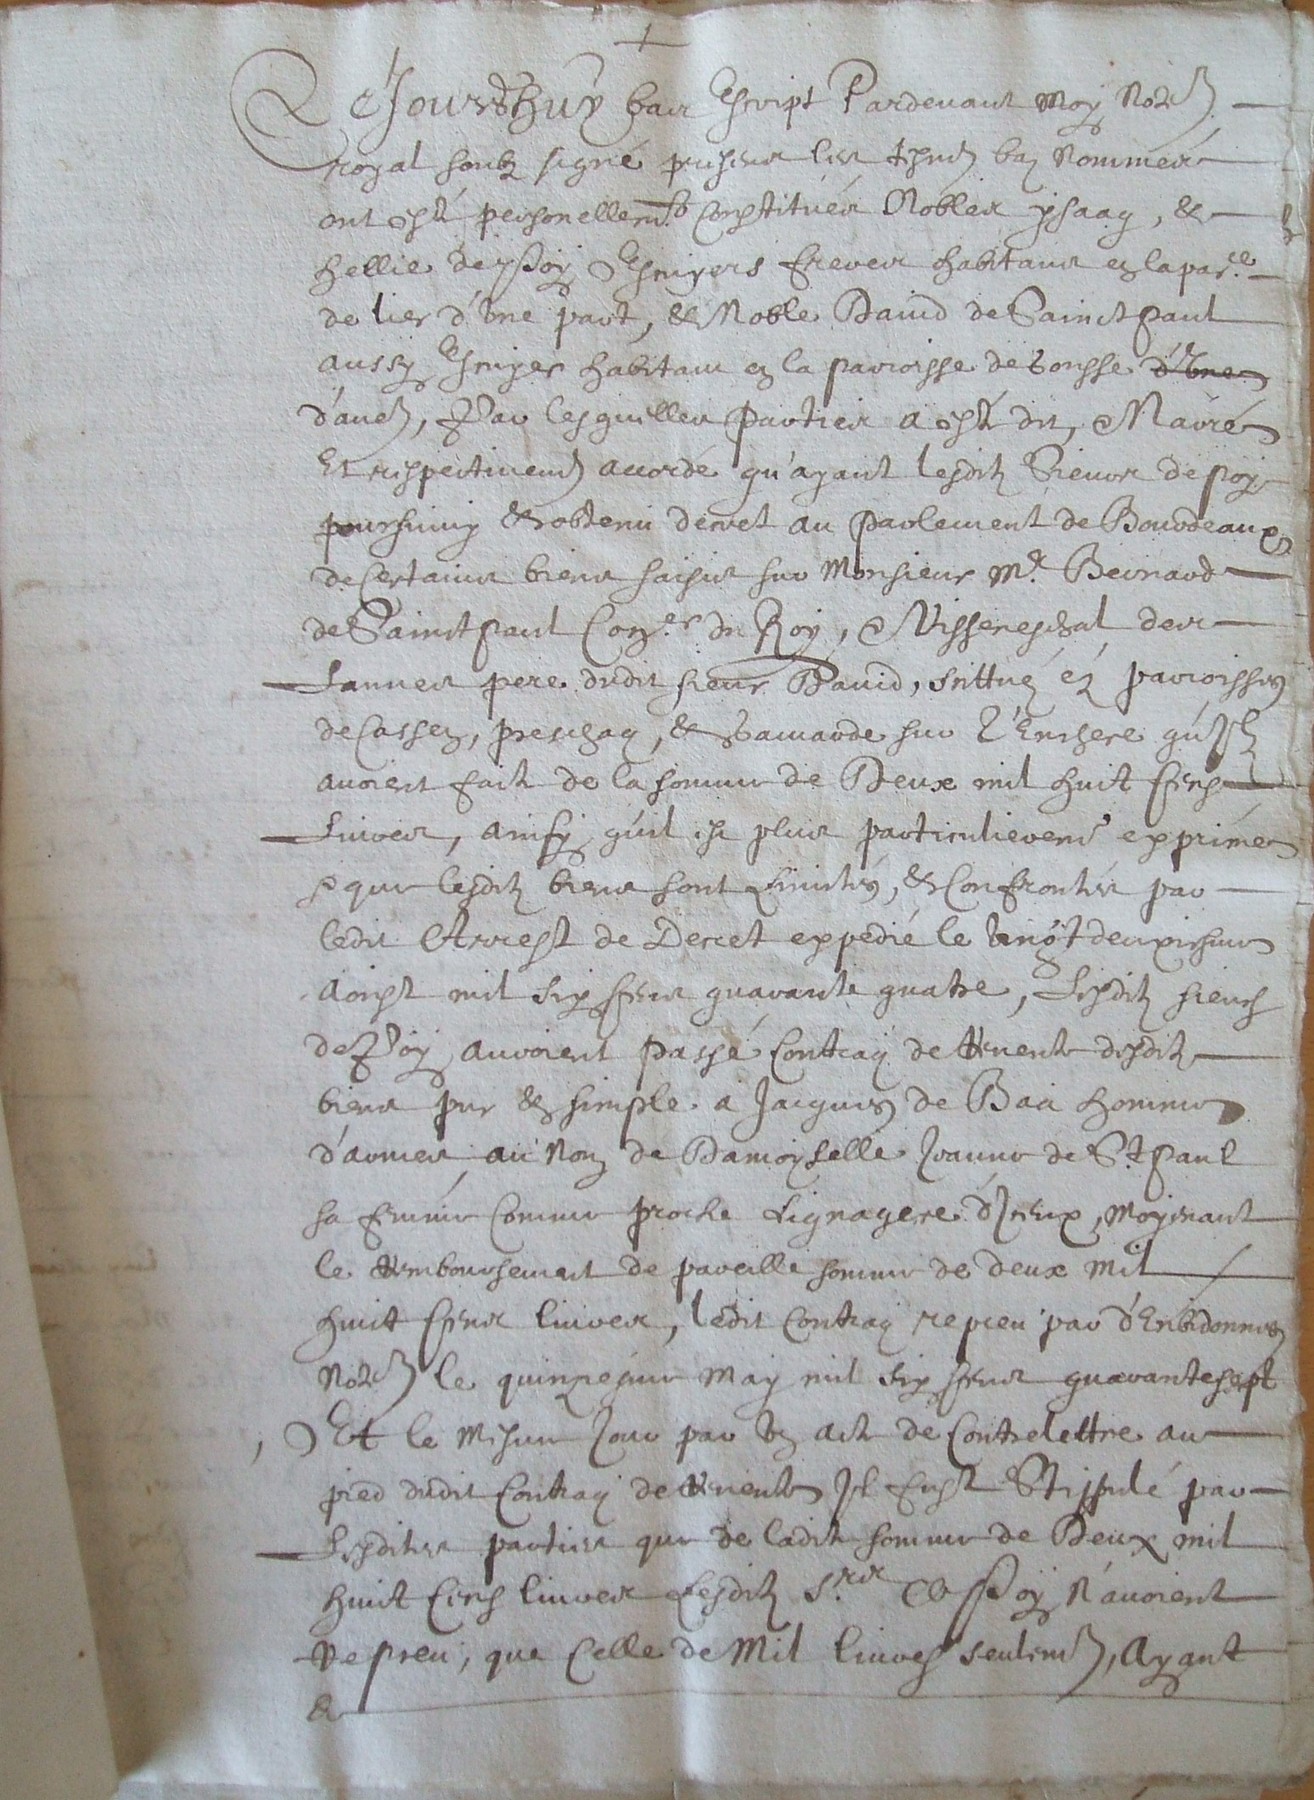 +
Cejourdhuy bas escript Pardevant Moy Not.re
royal soubz signé presens les tesmoings bas Nommés
ont esté personellem.t Constitués Nobles ysaaq, &
hellie de poy Escuyers freres habitans en la par.e
de lier d'Une part, & Noble Dauid de Sainct paul
aussy Escuyer habitant en la parroisse de d'Une
d'autre, Par lesquelles Parties a esté dit, Narré
Et respectivement accordé qu'ayant lesditz Sieurs de poy
poursuivy & obtenu decret au Parlement de Bourdeaux
de Certains biens saisis sur Monsieur M.e Bernard
de Sainct paul Con.er du Roy, Visseneschal des
Lannes pere dudit sieur Dauid, scittués en parroisses
de Cassen, preschaq, & Gamarde sur l'Enchere qu'Ilz
avoient faite de la somme de Deux mil huit cens
Livres, ainsy qu'il est plus particulierement exprimé
& que lesditz biens sont Limités, & Confrontés par
ledit Arrest de Decret expedié le vingt deuxiesme
Aoust mil six cens quarante quatre, Lesditz sieurs
de Poy avoient passé Contraq de Vente desditz
biens pur & simple a Jacques de Baa homme
d'armes au Nom de Damoyselle Jeanne de S.t Paul
sa femme Comme proche Lignagere d'Iceux, Moyenant
le Remboursement de pareille somme de deux Mil
huit cens livres, ledit Contraq repceu par
Not.re le quinziesme May mil six cens quarante sept
Et le Mesme Jour par Un acte de Contrelettre au
pied dudit Contraq de Vente Il fust Stipulé par
Lesdites parties que de ladite somme de Deux mil
huit Cens livres Lesditz S.rs de Poy N'avoient
Repceu, que Celle de Mil livres seulement, Ayant
&